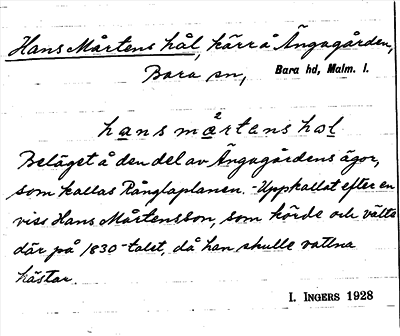 Hans Mårtens hål, kärr å Ängagården,
Bara sn, Bara hd, Malm. l.
hans mårtens hol
2
Beläget å den del av Ängagårdens ägor,
som kallas Rånglaplanen. - Uppkallat efter en
viss Hans Mårtensson, som körde och välte
där på 1830-talet, då han skulle vattna
hästar.
I. INGERS 1928